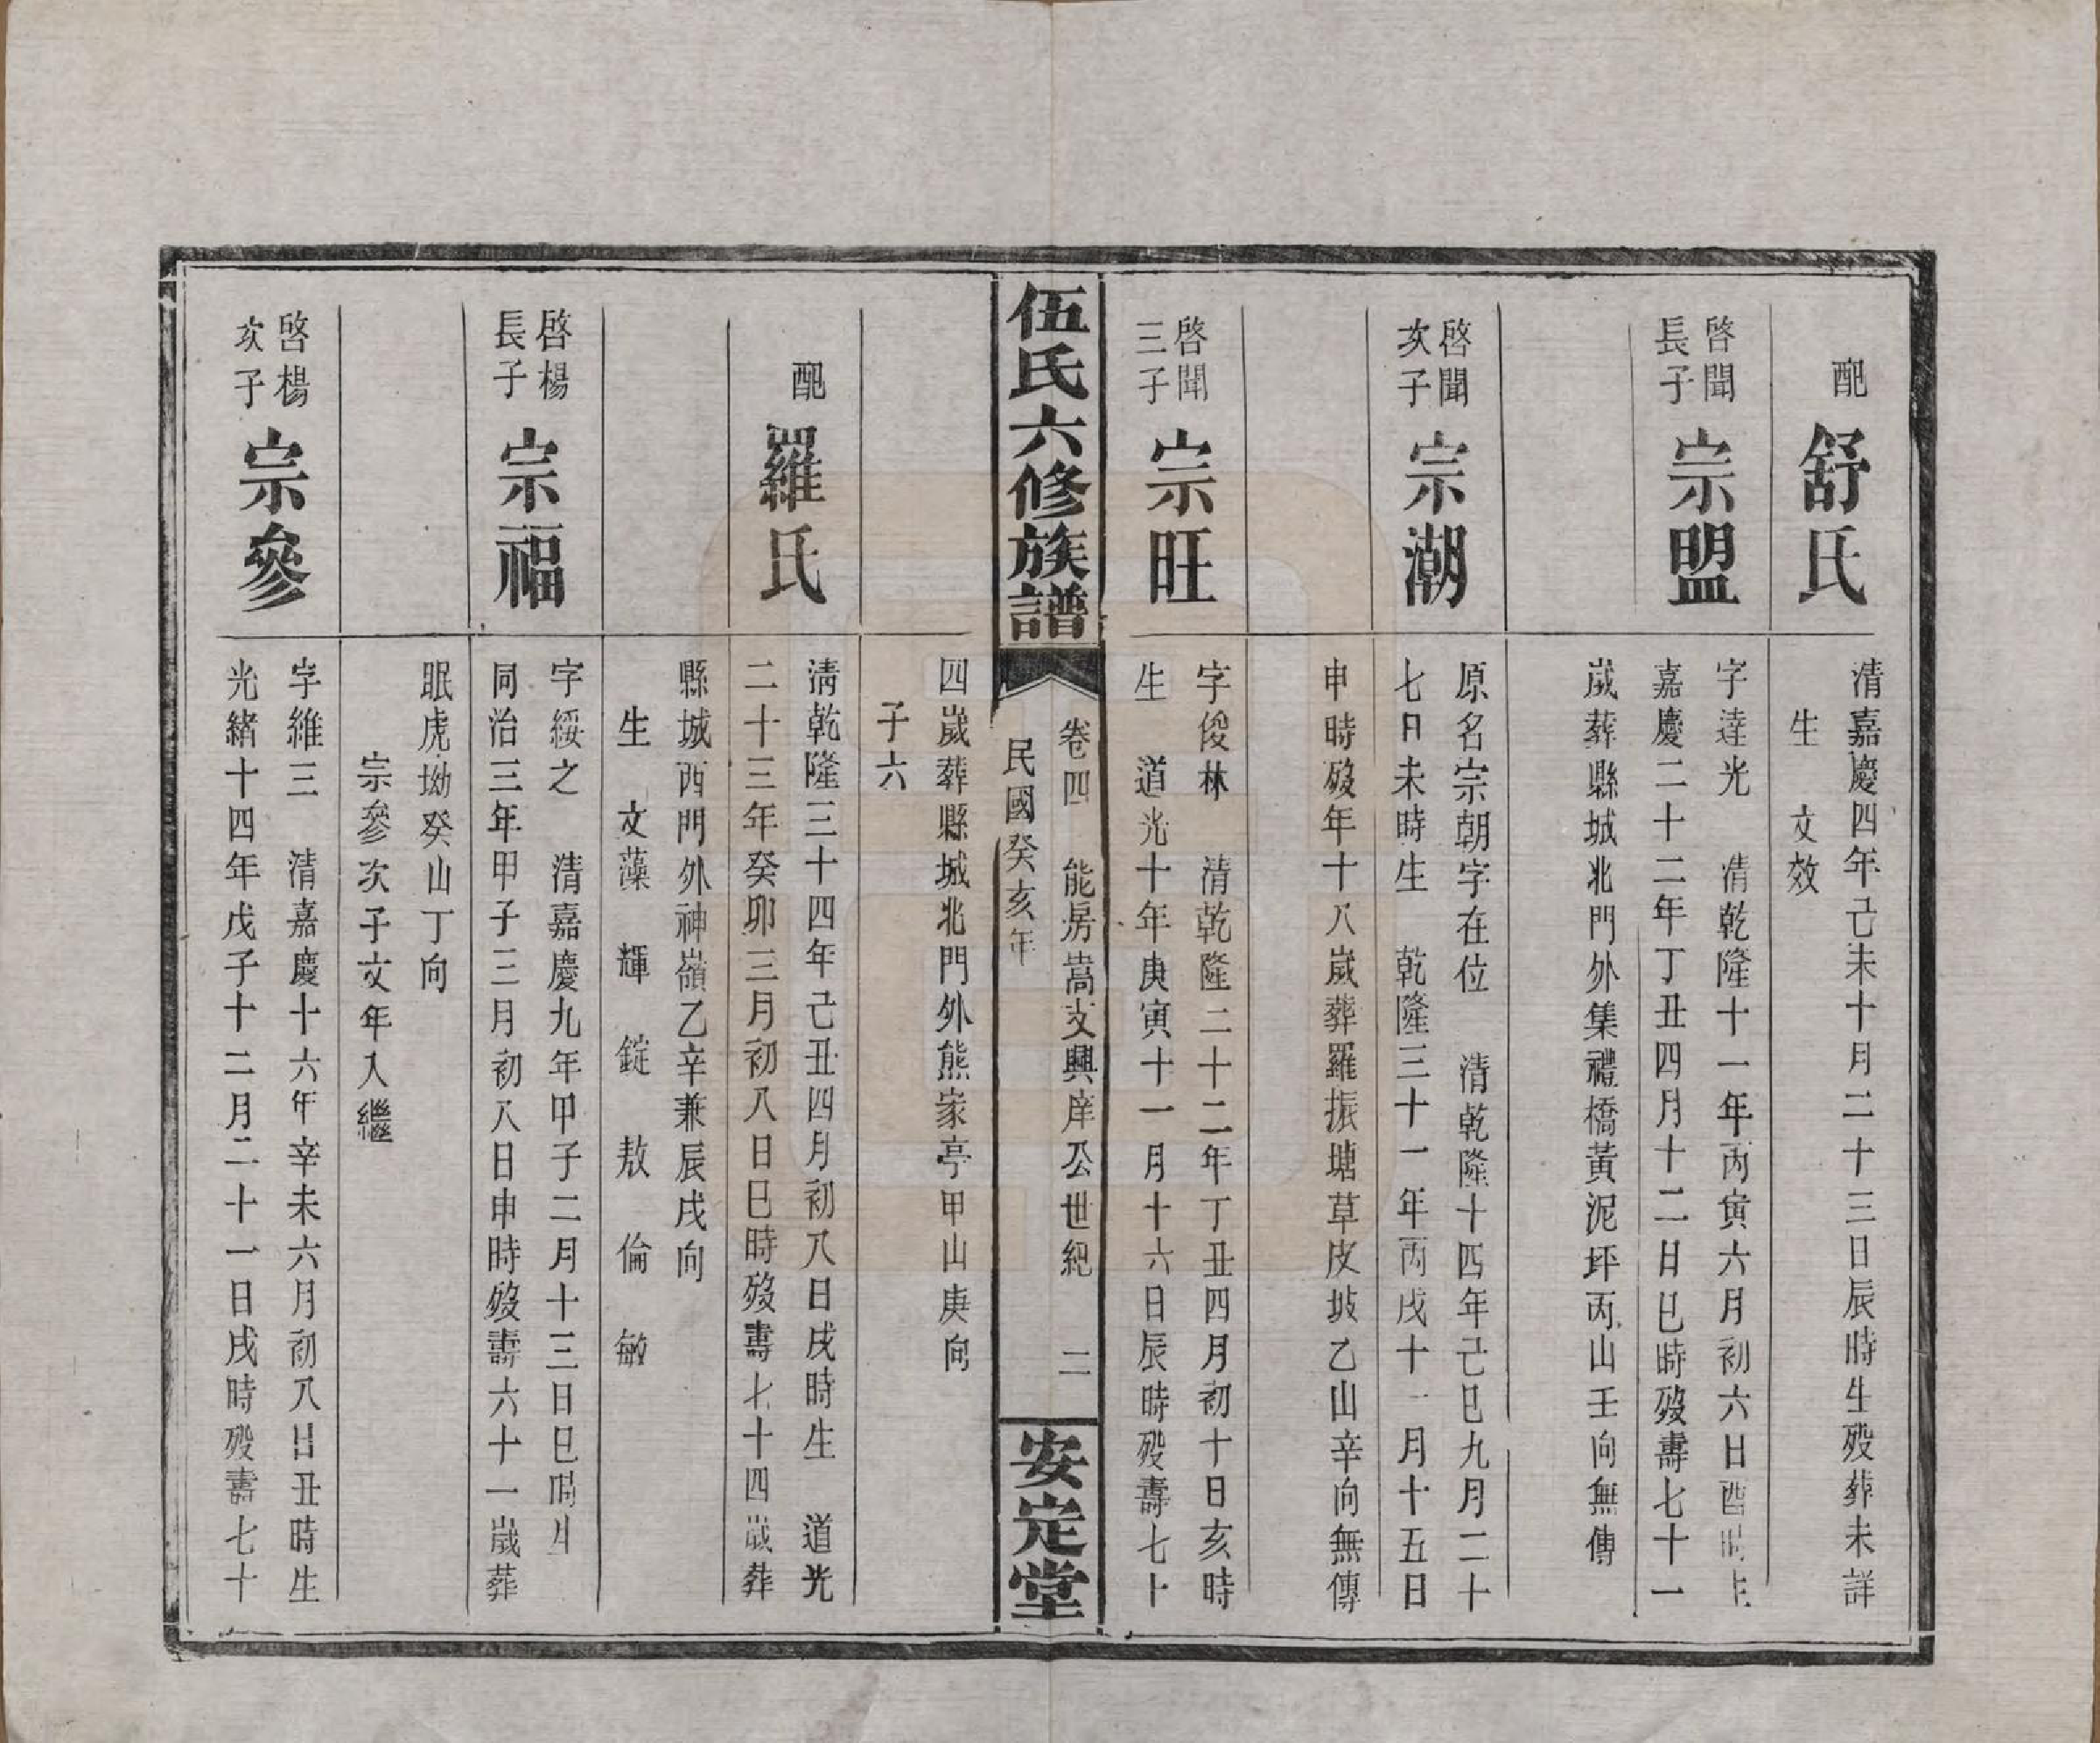 配
舒氏
清嘉慶四年己未十月二十三日辰時生殁葬未詳
生　文效
啓聞
長子
宗盟
字達光　清乾隆十一年丙寅六月初六日酉時生
嘉慶二十二年丁丑四月十二日巳時殁壽七十一
歲葬縣城北門外集禮橋黃泥坪丙山壬向無傳
啓聞
次子
宗潮
原名宗朝字在位　清乾隆十四年己巳九月二十
七日未時生　乾隆三十一年丙戌十一月十五日
申時殁年十八歲葬羅振塘草皮坡乙山辛向無傳
啓聞
三子
宗旺
字俊林　清乾隆二十二年丁丑四月初十日亥時
生　道光十年庚寅十一月十六日辰時殁壽七十
伍氏六修族譜
卷四　能房嵩支興庠公世紀　二
民國癸亥年
安定堂
四歲葬縣城北門外熊家亭甲山庚向
子六
配
羅氏
清乾隆三十四年己丑四月初八日戌時生　道光
二十三年癸卯三月初八日巳時殁壽七十四歲葬
縣城西門外神嶺乙辛兼辰戌向
生　文藻　輝　錠　敖　倫　敏
啓楊
長子
宗福
字綏之　清嘉慶九年甲子二月十三日巳時生
同治三年甲子三月初八日申時殁壽六十一歲葬
眠虎坳癸山丁向
宗參次子文年入繼
啓楊
次子
宗參
字維三　清嘉慶十六年辛未六月初八日丑時生
光緒十四年戊子十二月二十一日戌時殁壽七十